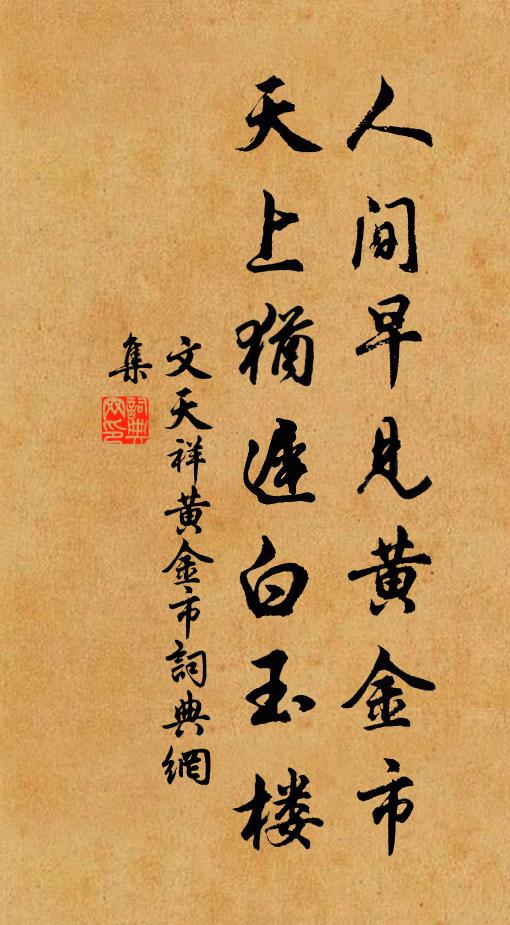 人间早見黄金市
天上猶遲白玉楼
文天祥黄金市詞典網
集
詞典網印